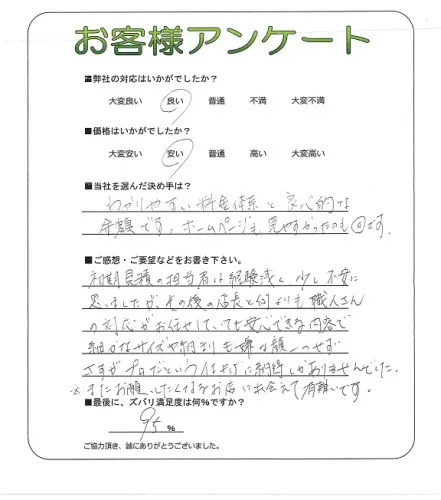 お客様アンケート
■弊社の対応はいかがでしたか?
大変良い 良い 普通 不満 大変不満
■価格はいかがでしたか?
大変安い 安い 普通 高い 大変高い
■当社を選んだ決め手は?
わかりやすい料金体系と良心的な
金額です。ホームページも見やすかったのも◎です。
■ご感想・ご要望などをお書き下さい。
初期見積の担当者は経験浅く少し不安に
思いましたが、その後の店長と何よりも職人さん
の対応がお任せしていても安心できる内容で
細かなサイズや納まりも嫌な顔一つせず
さすがプロだという仕上げに納得しかありませんでした。
※またお願いしたくなるお店に出会えて有難いです。
■最後に、ズバリ満足度は何%ですか?
95 %
ご協力頂き、誠にありがとうございました。